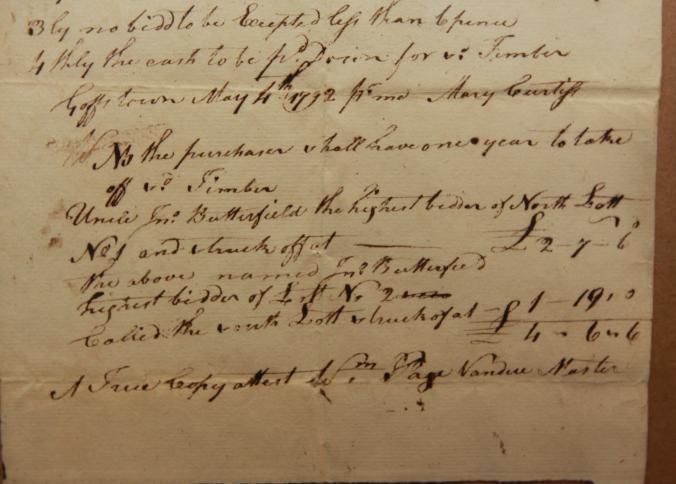 3ly no bidd to be Excepted less than 6 pence
4thly the cash to be pd Down for sd Timber
Goffstown May 4th 1792 pr me Mary Curtiss
NB the purchaser shall have one year to take
off sd Timber
Uncle Jno Butterfield the highest bidder of North Lott
No 1 and struck off at £ 2 - 7 - 6
the above named Jno Butterfield
highest bidder of Lott No 2
Called the south Lott struck of at £ 1 - 19 - 0
£ 4 - 6 - 6
A True Copy attest Wm Page Vandue Master